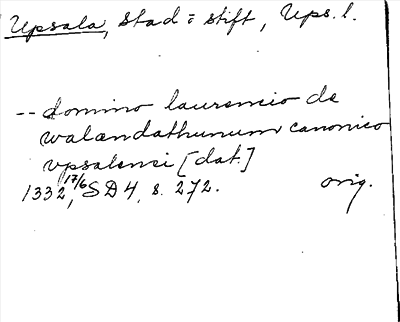 Upsala, stad o stift, Ups. l.
-- domino laurencio de
walændathunum canonico
vpsalensi [dat.]
1332 17/6, SD 4, s. 272. orig.